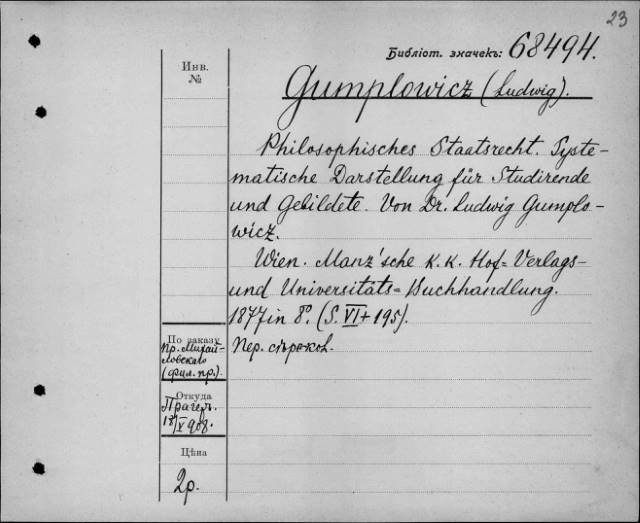 23
Библіот. значекъ: 68494.
Инв.
№
Gumplowicz (Ludwig).
Philosophisches Staatsrecht. Syste-
matische Darstellung für Studirende
und Gebildete. Von Dr. Ludwig Gumplo-
wicz.
Wien. Manz'sche K. K. Hof= Verlags-
und Universitäts= Buchhandlung.
1877 in 8º. (S. VI + 195).
По заказу
Пр. Михай-
ловскаго
(фил. пр.).
Пер. съ
Откуда
Прагеръ.
18/V 908.
Цѣна
2р.